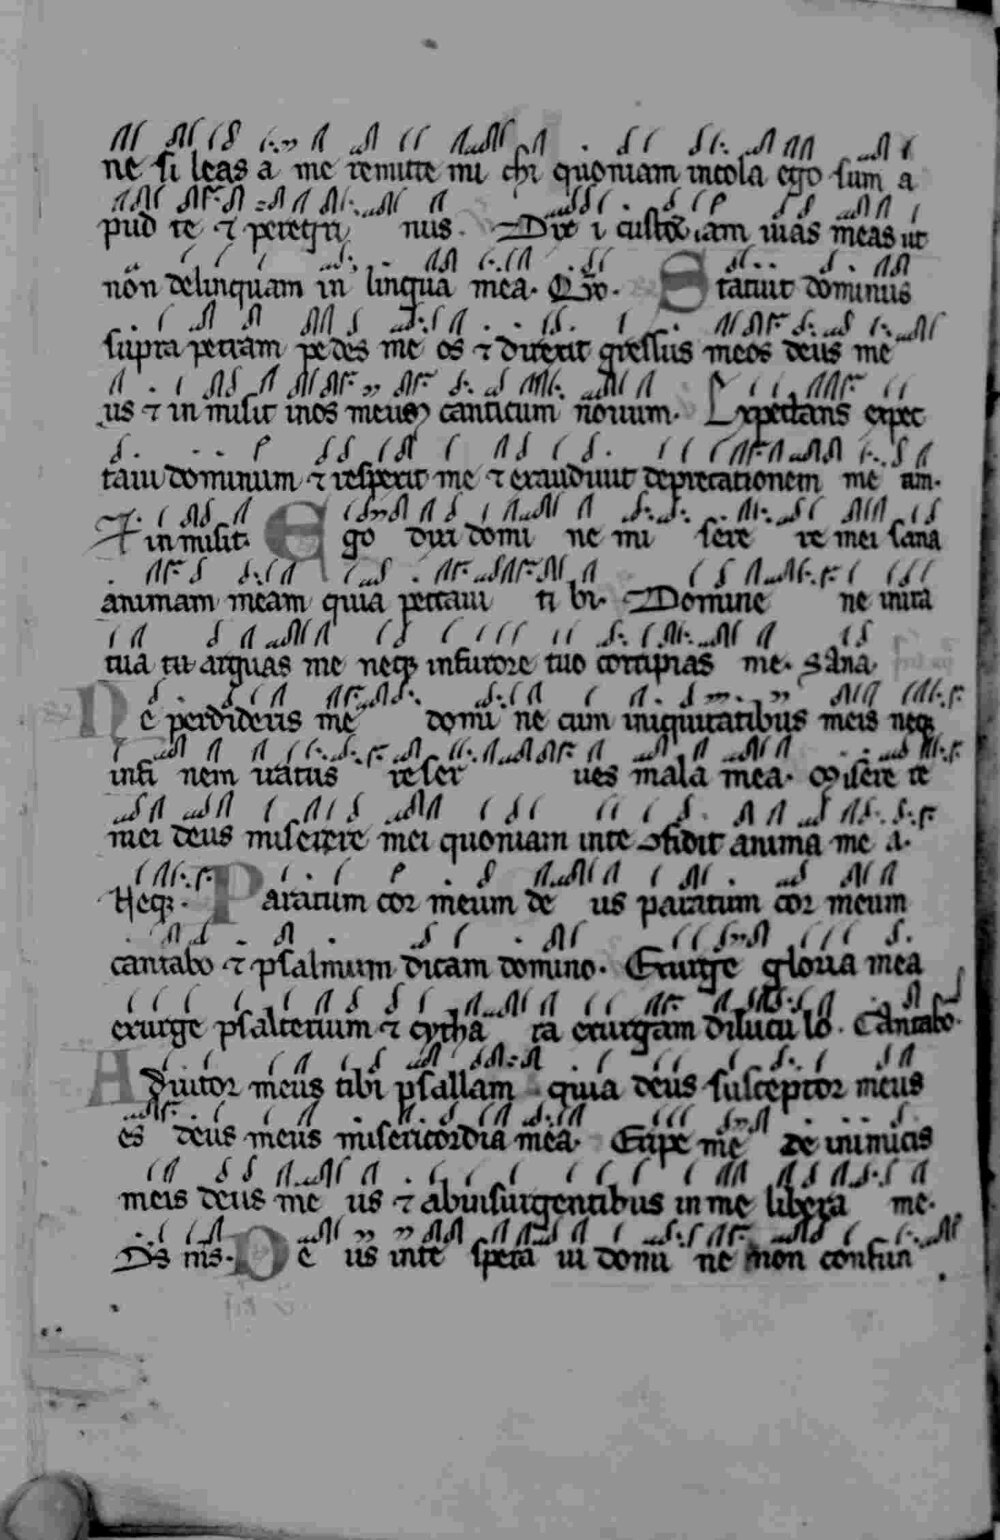 ne si leas a me remitte mi chi quoniam incola ego sum a
pud te ⁊ peregri nus. Dixi custodiam uias meas ut
non delinquam in lingua mea. Qm̄. Statuit dominus
supra petram pedes me os ⁊ direxit gressus meos deus me
us ⁊ in misit in os meum canticum nouum. Expectans expec
taui dominum ⁊ respexit me ⁊ exaudiuit deprecationem me am.
⁊ in misit. Ego dixi domi ne mi sere re mei sana
animam meam quia peccaui ti bi. Domine ne in ira
tua tu arguas me neqȝ in furore tuo corripias me. Sana.
Ne perdideris me domi ne cum iniquitatibus meis neqȝ
in fi nem iratus reser ues mala mea. Misere re
mei deus miserere mei quoniam in te ɔfidit anima me a.
Neqȝ. Paratum cor meum de us paratum cor meum
cantabo ⁊ psalmum dicam domino. Exurge gloria mea
exurge psalterium ⁊ cytha ra exurgam dilucu lo. Cantabo.
Adiutor meus tibi psallam quia deus susceptor meus
es deus meus misericordia mea. Eripe me de inimicis
meis deus me us ⁊ ab insurgentibus in me libera me.
Ds̄ ms̄. De us in te spera ui domi ne non confun